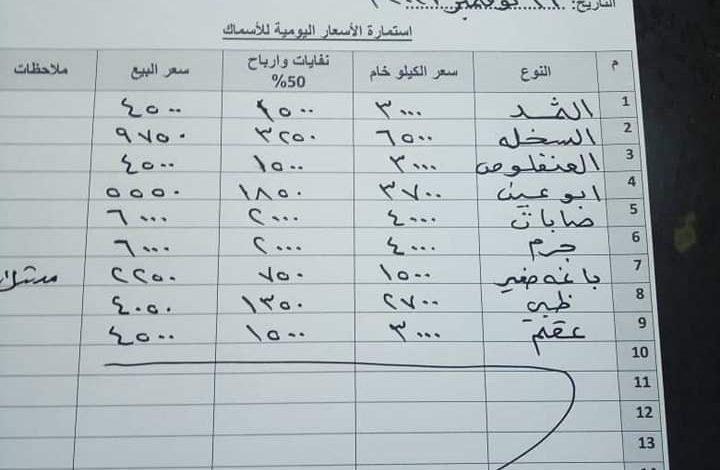 التاريخ: نوفمبر
استمارة الأسعار اليومية للأسماك
م النوع سعر الكيلو خام نفايات وارباح 50% سعر البيع ملاحظات
1 الثمد ٣٠٠٠ ١٥٠٠ ٤٥٠٠
2 السخله ٦٥٠٠ ٣٢٥٠ ٩٧٥٠
3 العنفلوص ٣٠٠٠ ١٥٠٠ ٤٥٠٠
4 ابو عين ٣٧٠٠ ١٨٥٠ ٥٥٥٠
5 ضابات ٤٠٠٠ ٢٠٠٠ ٦٠٠٠
6 جرم ٤٠٠٠ ٢٠٠٠ ٦٠٠٠
7 باغه صغير ١٥٠٠ ٧٥٠ ٢٢٥٠
8 ظبي ٢٧٠٠ ١٣٥٠ ٤٠٥٠
9 عقام ٣٠٠٠ ١٥٠٠ ٤٥٠٠
10
11
12
13